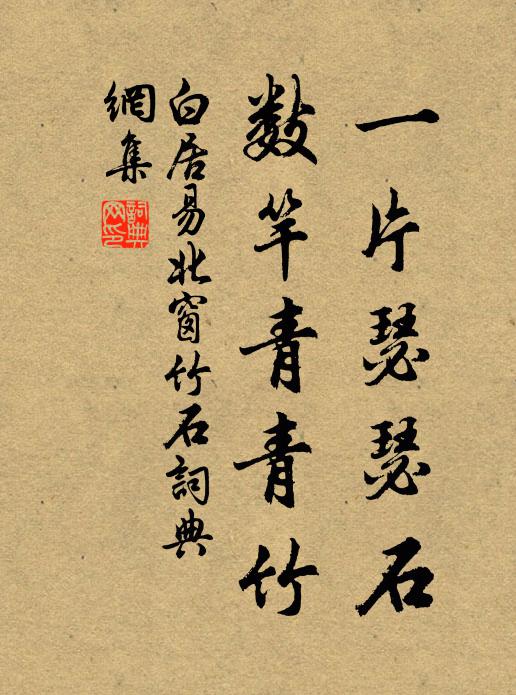 一片瑟瑟石
数竿青青竹
白居易北窗竹石詞典
網集
詞典網印